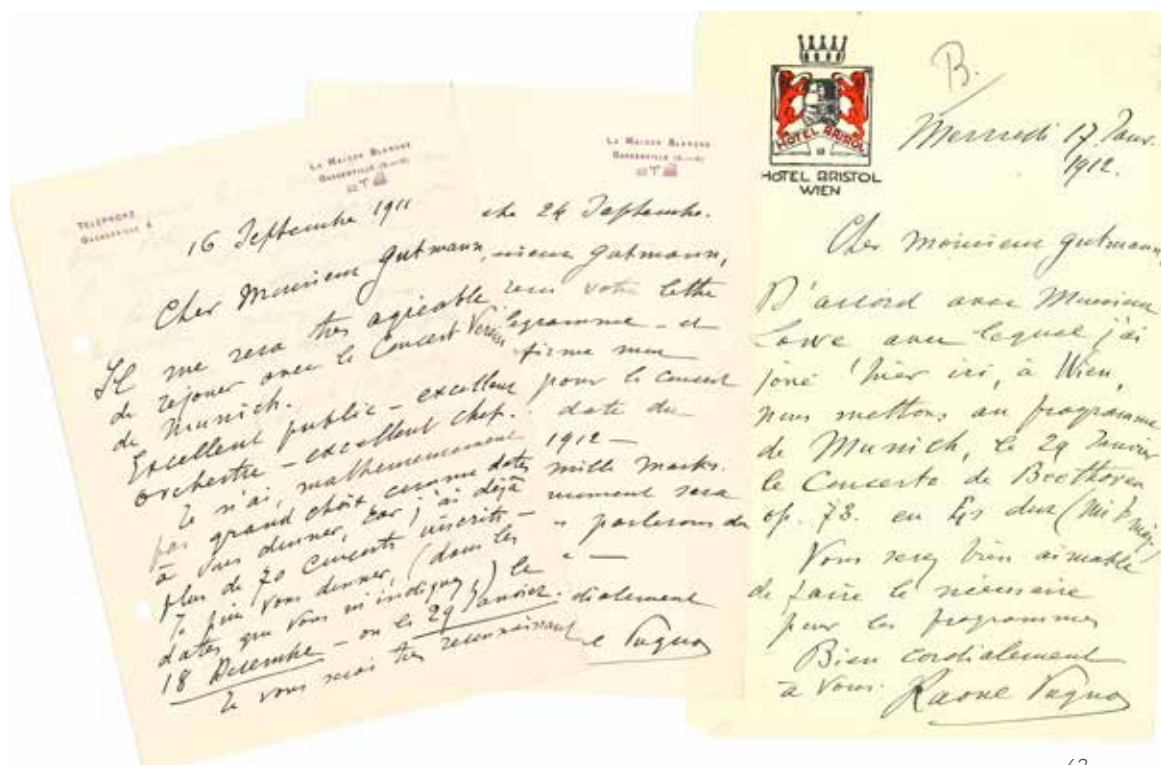 TELEPHONE
GARGENVILLE 4
LA MAISON BLANCHE
GARGENVILLE (S.-&-O.)
16 Septembre 1911
Cher Monsieur Gutmann,
Il me sera très agréable
de rejouer avec le Concert Verein
de Munich.
Excellent public – excellent
orchestre – excellent chef.
Je n'ai, malheureusement
pas grand choix comme dates
à vous donner, car j'ai déjà
plus de 70 concerts inscrits –
Je puis vous donner, (dans les
dates que vous m'indiquez) le
18 Décembre – ou le 29 Janvier.
Je vous serais très reconnaissant
LA MAISON BLANCHE
GARGENVILLE (S.-&-O.)
che 24 Septembre.
nsieur Gutmann,
votre lettre
légramme – et
firme mon
pour le concert
date du
1912 –
mille marks.
sera
parlerons du
dialement
Pugno
HOTEL BRISTOL
HOTEL BRISTOL
WIEN
B.
Mercredi 17 Janv.
1912.
Cher Monsieur Gutmann,
D'accord avec Monsieur
Löwe avec lequel j'ai
joué hier ici, à Wien,
nous mettons au programme
de Munich, le 29 Janvier
le Concerto de Beethoven
op. 73. en Es dur (mi b maj)
Vous serez bien aimable
de faire le nécessaire
pour les programmes
Bien cordialement
à vous. Raoul Pugno
62